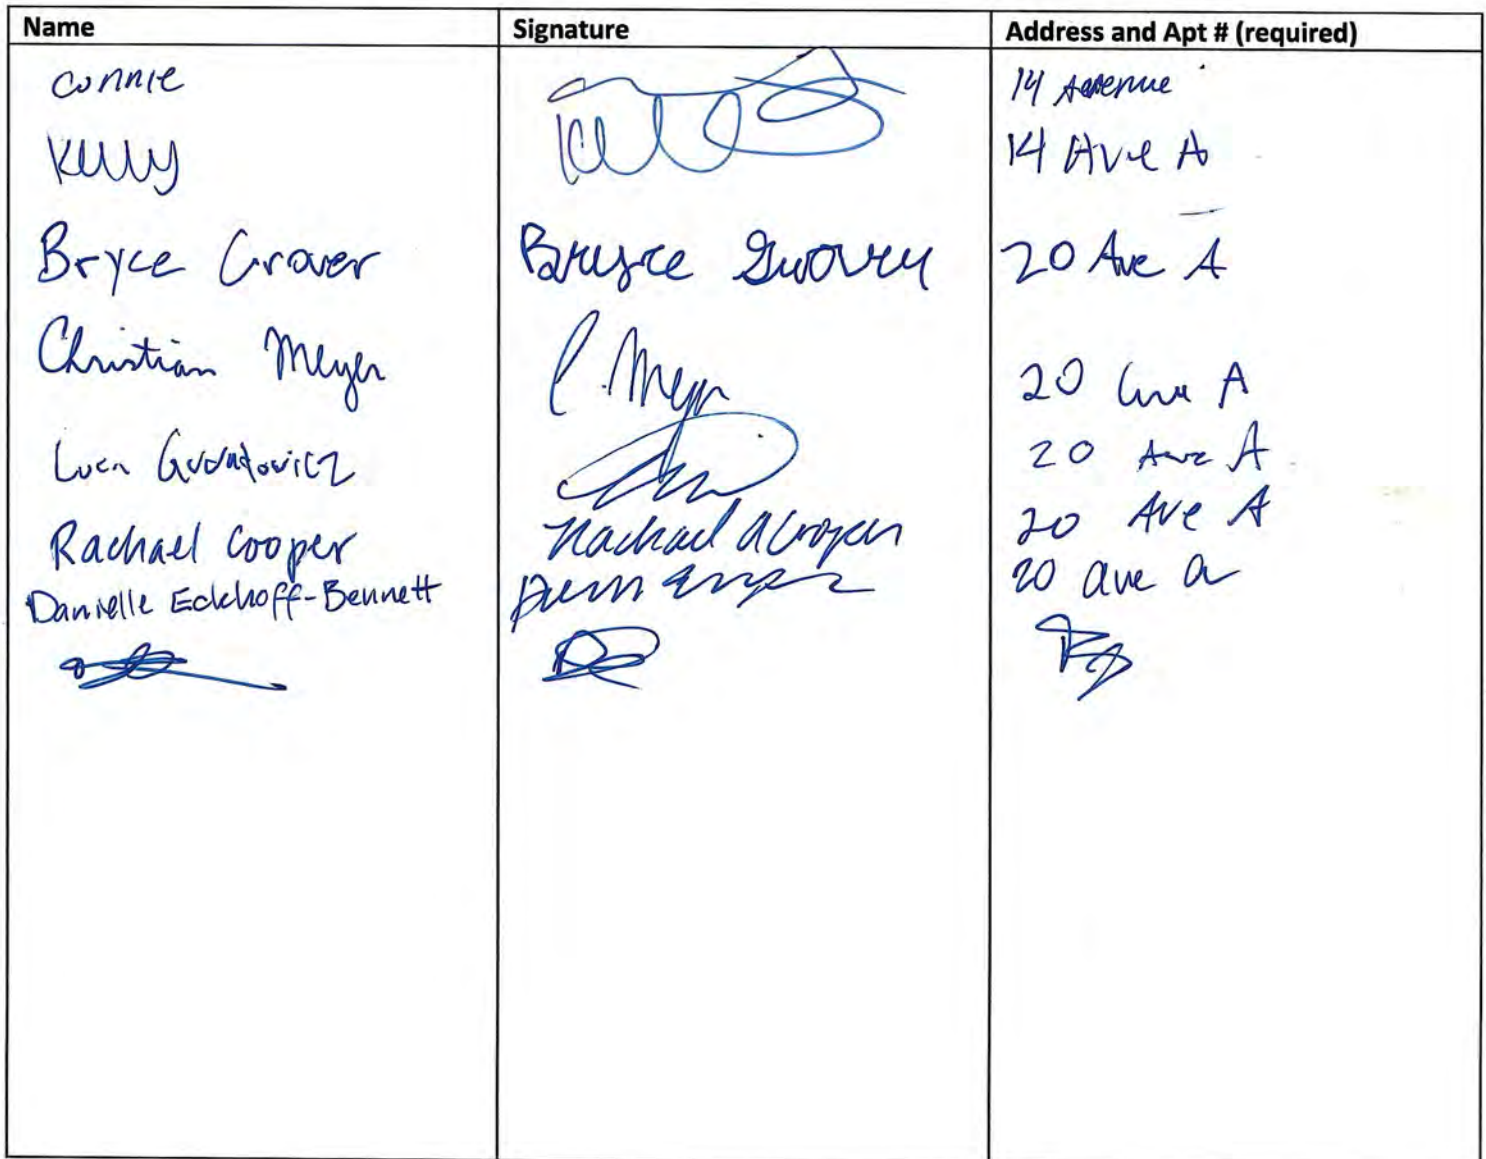 Name Signature Address and Apt # (required)
Connie 14 Avenue
Kelly 14 Ave A
Bryce Grover Bryce Grover 20 Ave A
Christian Meyer C. Meyer 20 Ave A
Luca 20 Ave A
Rachael Cooper Rachael A Cooper 20 Ave A
Danielle Eckhoff-Bennett 20 ave a